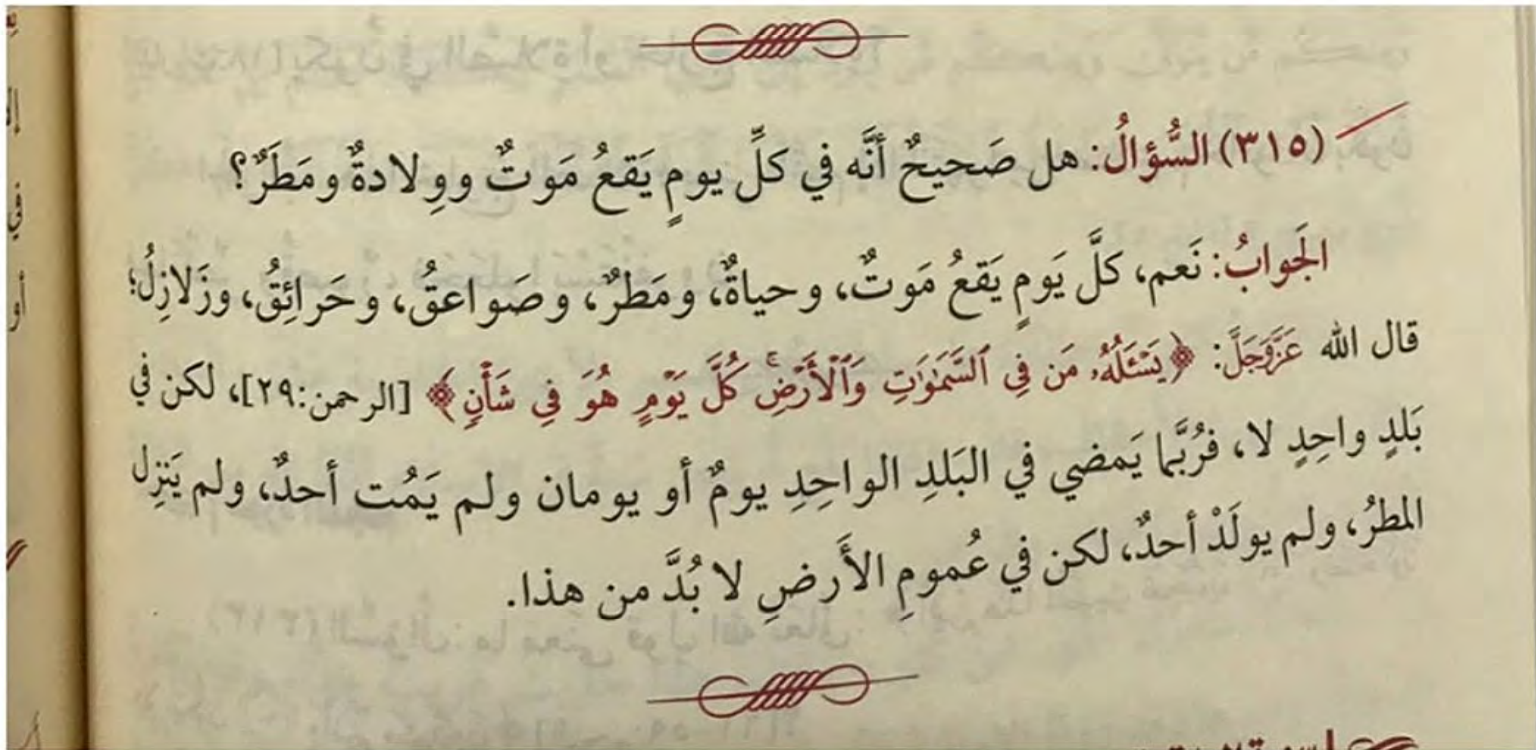 (٣١٥) السُّؤالُ: هل صَحيحٌ أنَّه في كلِّ يومٍ يَقعُ مَوتٌ ووِلادةٌ ومَطَرٌ؟
الجَوابُ: نَعم، كلَّ يَومٍ يَقعُ مَوتٌ، وحياةٌ، ومَطرٌ، وصَواعقُ، وحَرائِقُ، وزَلازِلُ؛
قال الله عَزَّوَجَلَّ: ﴿يَسْـَٔلُهُۥ مَن فِى ٱلسَّمَـٰوَٰتِ وَٱلْأَرْضِ ۚ كُلَّ يَوْمٍ هُوَ فِى شَأْنٍ﴾ [الرحمن:٢٩]، لكن في
بَلدٍ واحِدٍ لا، فرُبَّما يَمضي في البَلدِ الواحِدِ يومٌ أو يومان ولم يَمُت أحدٌ، ولم يَنزِل
المطرُ، ولم يولَدْ أحدٌ، لكن في عُمومِ الأَرضِ لا بُدَّ من هذا.